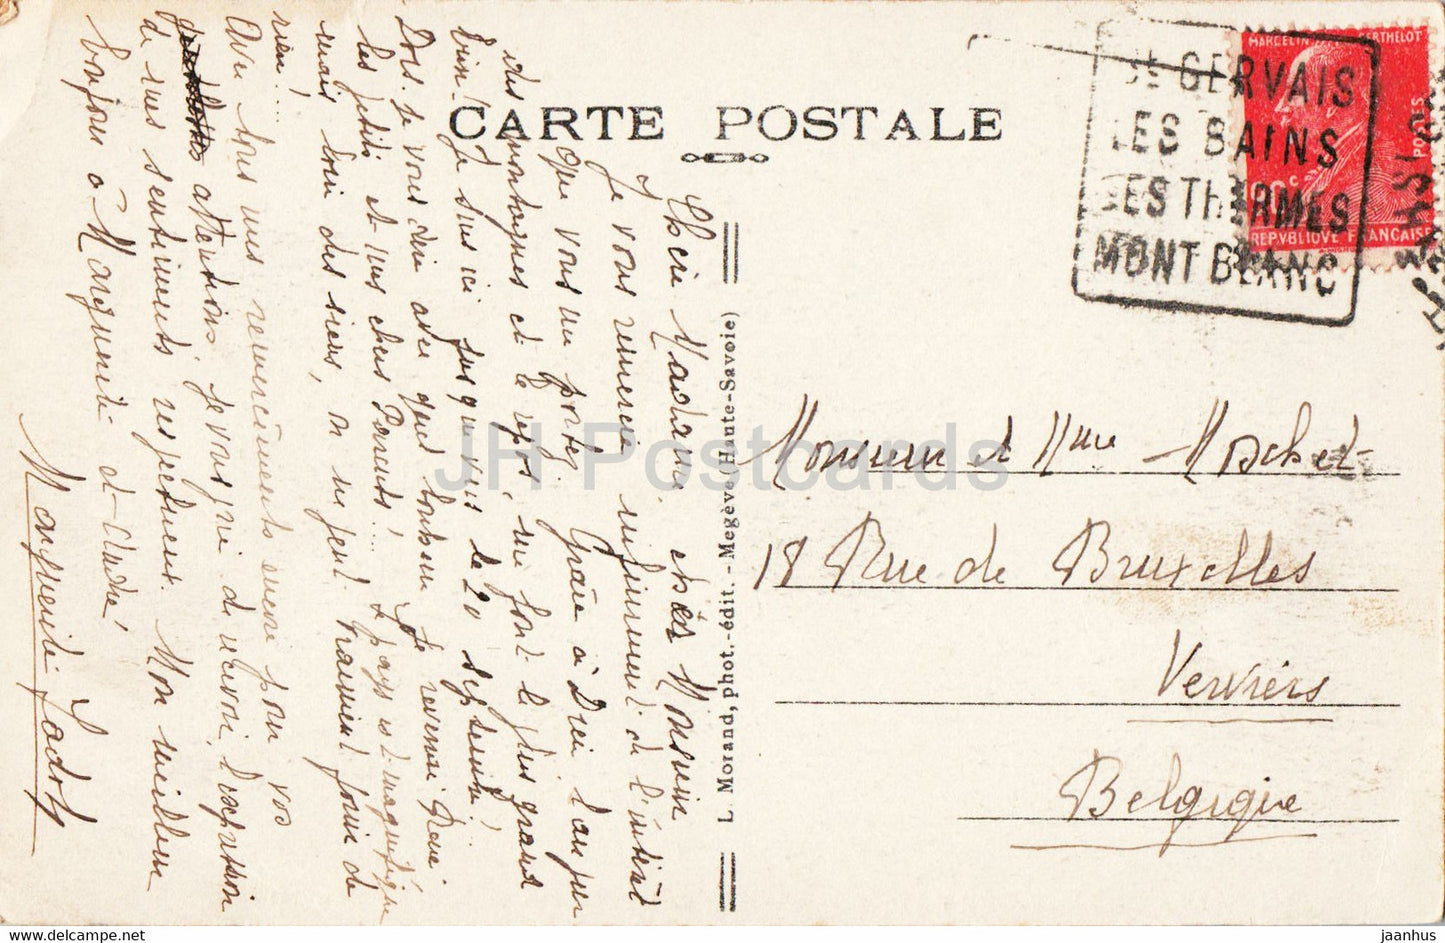 CARTE POSTALE
Chère Madame, chèr Monsieur
Je vous remercie infiniment de l'intérêt
que vous me portez. Grâce à Dieu, l'air pur
des montagnes et le repos, me font le plus grand
bien! Je suis ici jusque vers le 20 septembre!
Dois-je vous dire avec quel bonheur je reverrai René
les petits et mes chers Parents!... Le pays est magnifique
mais loin des siens, on ne peut vraiment jouir de
rien!...
Avec tous mes remerciements encore pour vos
attentions, je vous prie de recevoir, l'expression
de mes sentiments respectueux. Mon meilleur
bonjour à Marguerite et André
Marguerite Jadot
L. Morand, phot.-édit. - Megève (Haute-Savoie)
St GERVAIS
LES BAINS
SES THERMES
MONT BLANC
MARCELIN BERTHELOT
POSTES
90c
REPVBLIQVE FRANÇAISE
Monsieur et Mme Moschet
18 Rue de Bruxelles
Verviers
Belgique
JH Postcards
Delcampe.net
jaanhus